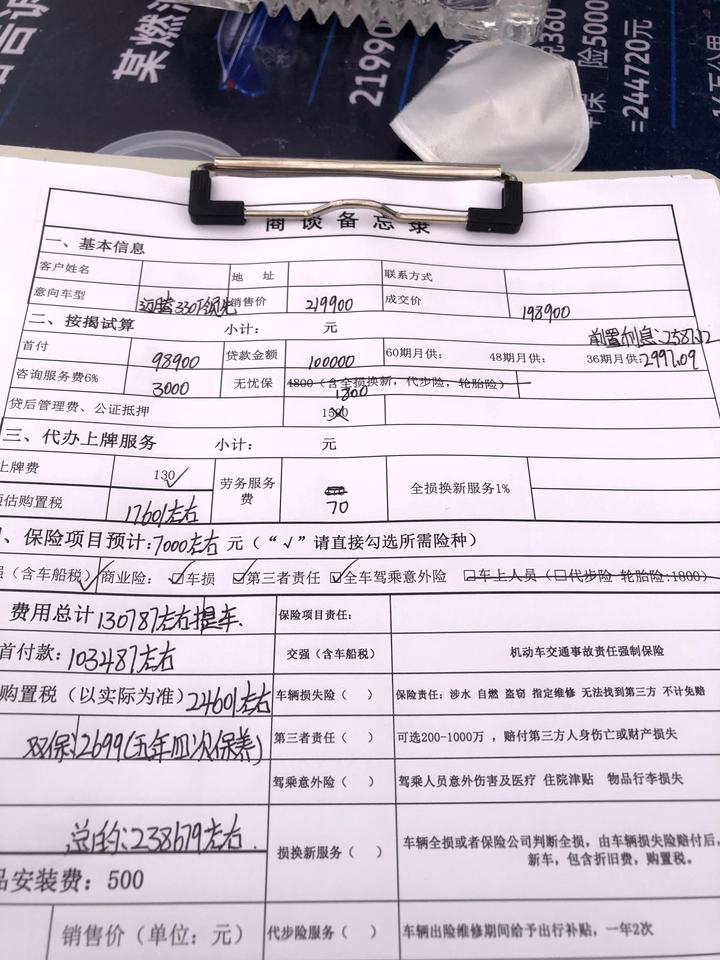 某燃油
21990
险5000
=244720元
商谈备忘录
一、基本信息
客户姓名 地 址 联系方式
意向车型 迈腾330T领先 销售价 219900 成交价 198900
二、按揭试算 小计: 元 前置利息:2587.12
首付 98900 贷款金额 100000 60期月供: 48期月供: 36期月供:2997.09
咨询服务费6% 3000 无忧保 4800(含全损换新,代步险,轮胎险)
1800
贷后管理费、公证抵押 1500
三、代办上牌服务 小计: 元
上牌费 130✓ 劳务服务费 70 全损换新服务1%
预估购置税 17601左右
、保险项目预计:7000左右 元(“√”请直接勾选所需险种)
强(含车船税)✓ 商业险: ☑车损 ☑第三者责任 ☑全车驾乘意外险 □车上人员(□代步险 轮胎险:1800)
费用总计 130787左右提车. 保险项目责任:
首付款:103487左右 交强(含车船税) 机动车交通事故责任强制保险
购置税(以实际为准)24601左右 车辆损失险( ) 保险责任:涉水 自燃 盗窃 指定维修 无法找到第三方 不计免赔
双保:2699(五年四次保养) 第三者责任( ) 可选200-1000万 ,赔付第三方人身伤亡或财产损失
驾乘意外险( ) 驾乘人员意外伤害及医疗 住院津贴 物品行李损失
总的:238679左右. 损换新服务( ) 车辆全损或者保险公司判断全损,由车辆损失险赔付后,
新车,包含折旧费,购置税。
品安装费:500
销售价(单位:元) 代步险服务( ) 车辆出险维修期间给予出行补贴,一年2次